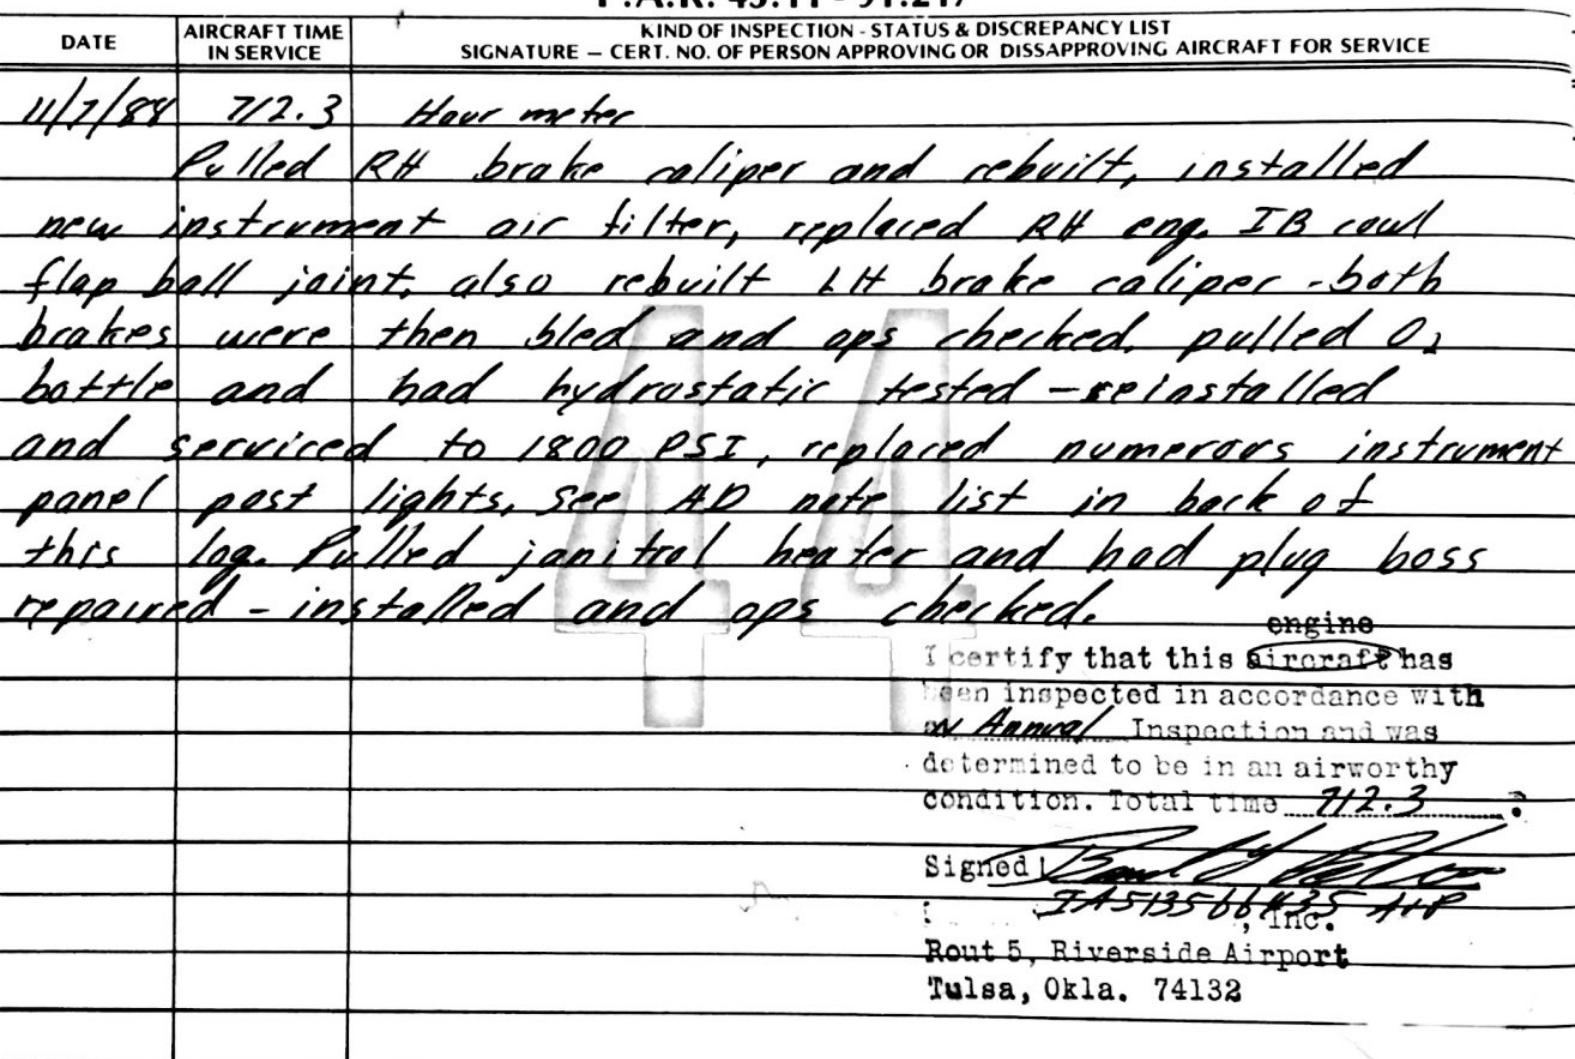 F.A.R. 43.11 - 91.217
DATE
AIRCRAFT TIME
IN SERVICE
KIND OF INSPECTION - STATUS & DISCREPANCY LIST
SIGNATURE — CERT. NO. OF PERSON APPROVING OR DISSAPPROVING AIRCRAFT FOR SERVICE
11/7/88 712.3 Hour meter
Pulled RH brake caliper and rebuilt, installed
new instrument air filter, replaced RH eng. IB cowl
flap ball joint, also rebuilt LH brake caliper - both
brakes were then bled and ops checked. pulled O2
bottle and had hydrostatic tested - reinstalled
and serviced to 1800 PSI, replaced numerous instrument
panel post lights, See AD note list in back of
this log. Pulled janitrol heater and had plug boss
repaired - installed and ops checked.
44
engine
I certify that this aircraft has
been inspected in accordance with
an Annual Inspection and was
determined to be in an airworthy
condition. Total time 712.3.
Signed
IA513566435 A+P
, Inc.
Rout 5, Riverside Airport
Tulsa, Okla. 74132